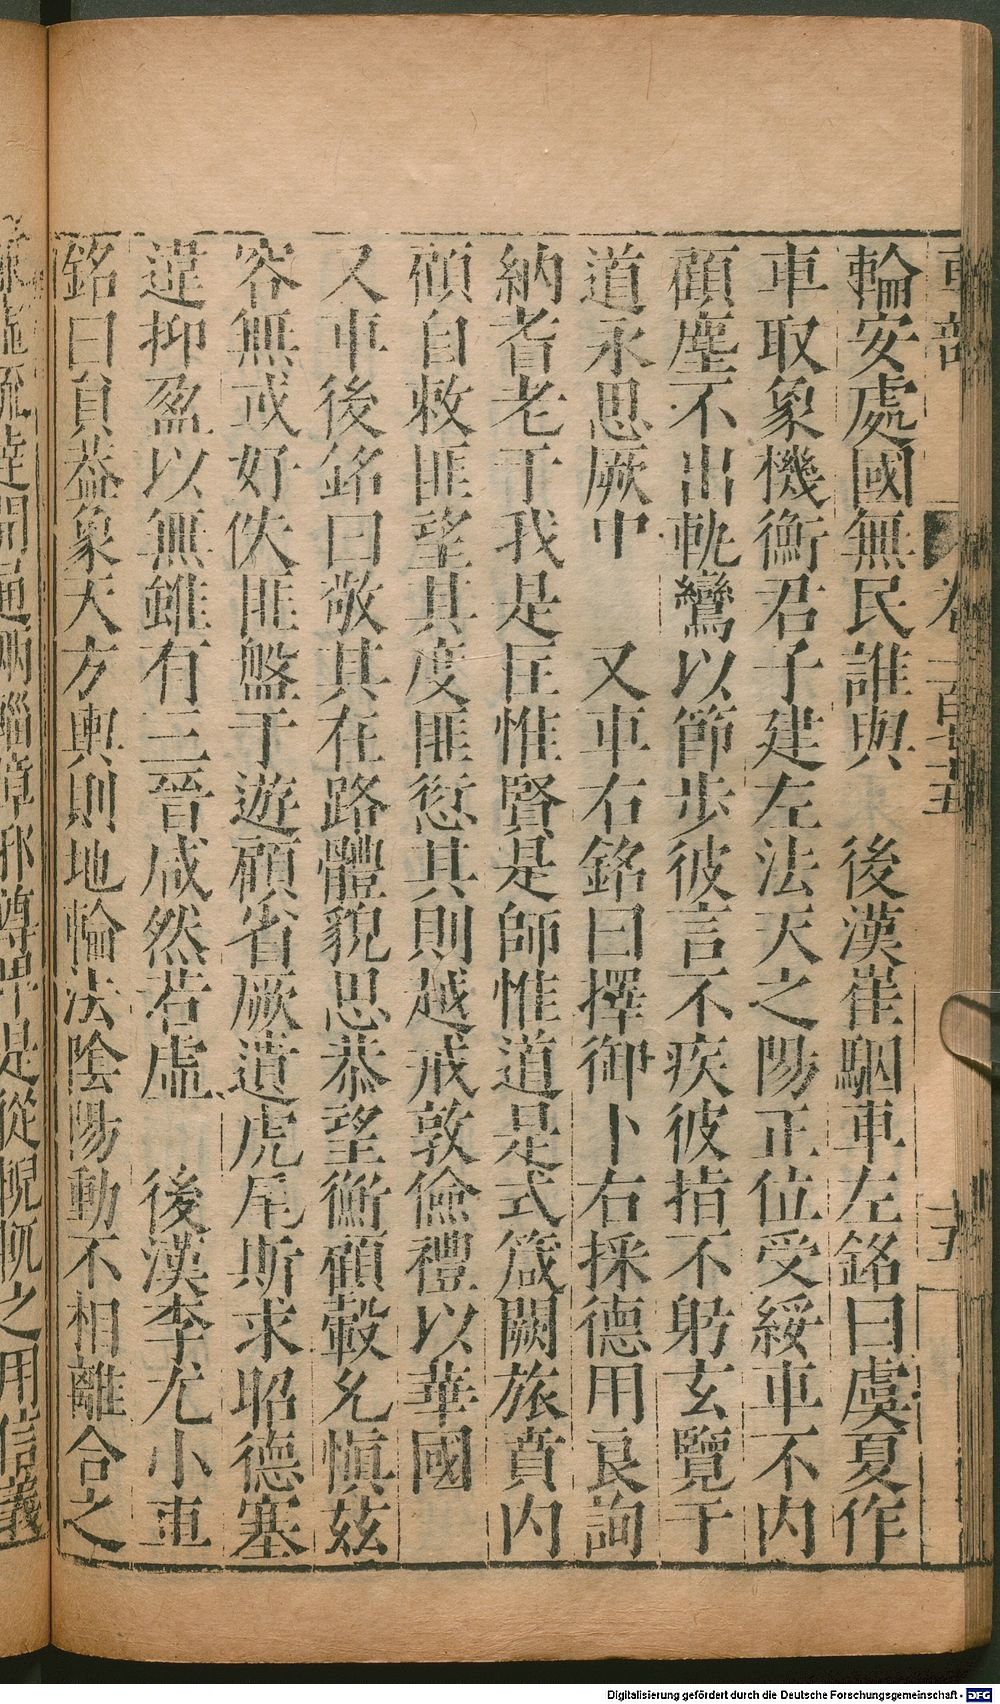 車部 卷一百五
輪安處國無民誰與 後漢崔駰車左銘曰虞夏作
車取象機衡君子建左法天之陽正位受綏車不內
顧塵不出軌鸞以節步彼言不疾彼指不躬玄覽于
道永思厥中 又車右銘曰擇御卜右採德用良詢
納耆老于我是匡惟賢是師惟道是式箴闕旅賁內
顧自敕匪望其度匪愆其則越戒敦儉禮以華國
又車後銘曰敬其在路體貌思恭望衡顧轂允慎茲
容無或好佚匪盤于遊顧省厥遺虎尾斯求昭德塞
違抑盈以無雖有三晉咸然若虛 後漢李尤小車
銘曰負蓋象天方輿則地輪法陰陽動不相離合之
疏達開通兩輜障邪尊卑是從輗軏之用信義
Digitalisierung gefördert durch die Deutsche Forschungsgemeinschaft - DFG